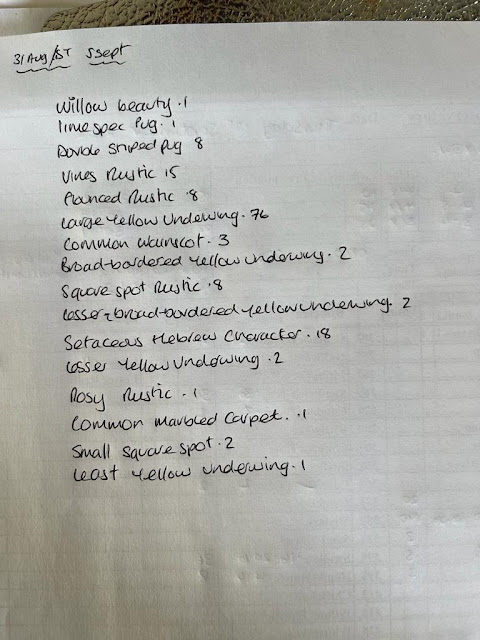 31 Aug/1ST SSept
Willow beauty . 1
lime spec Pug . 1
Double Striped Pug 8
Vines Rustic 15
Flounced Rustic . 8
Large Yellow Underwing . 76
Common Wainscot . 3
Broad-bordered Yellow underwing . 2
Square Spot Rustic . 8
Lesser-broad-bordered Yellow underwing . 2
Setaceous Hebrew Character . 18
Lesser Yellow Underwing . 2
Rosy Rustic . 1
Common Marbled Carpet . . 1
Small Square Spot . 2
Least Yellow underwing . 1